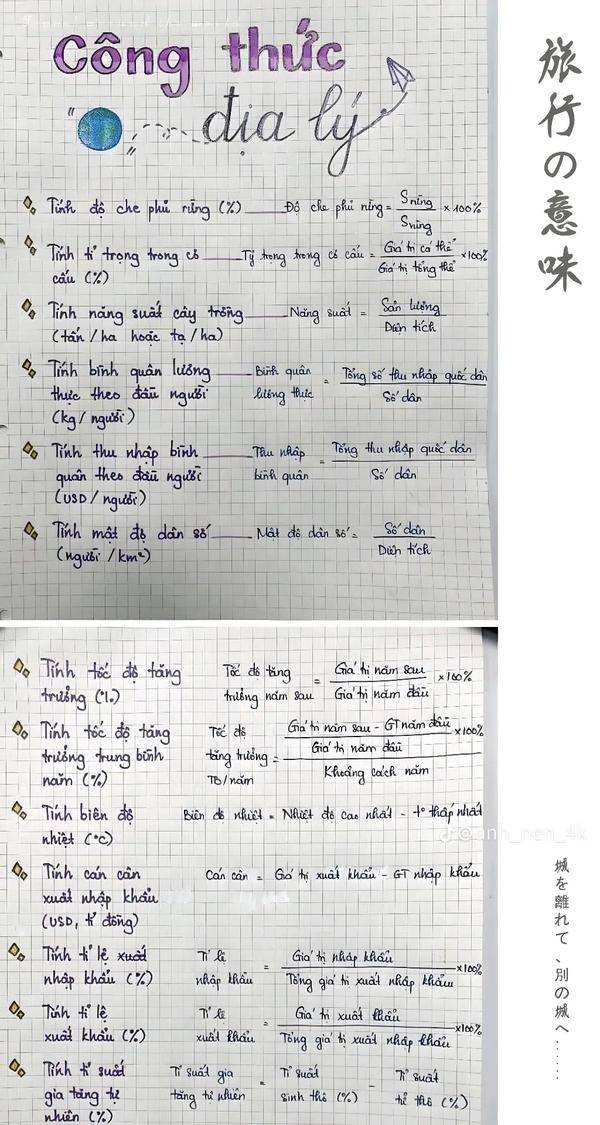 Công thức
địa lý
Tính độ che phủ rừng (%) Độ che phủ rừng = Srừng / Srừng × 100%
Tính tỉ trọng trong cơ cấu (%) Tỷ trọng trong cơ cấu = Giá trị cá thể / Giá trị tổng thể × 100%
Tính năng suất cây trồng (tấn / ha hoặc tạ / ha) Năng suất = Sản lượng / Diện tích
Tính bình quân lương thực theo đầu người (kg / người) Bình quân lương thực = Tổng số thu nhập quốc dân / Số dân
Tính thu nhập bình quân theo đầu người (USD / người) Thu nhập bình quân = Tổng thu nhập quốc dân / Số dân
Tính mật độ dân số (người / km²) Mật độ dân số = Số dân / Diện tích
Tính tốc độ tăng trưởng (%) Tốc độ tăng trưởng năm sau = Giá trị năm sau / Giá trị năm đầu × 100%
Tính tốc độ tăng trưởng trung bình năm (%) Tốc độ tăng trưởng TB/năm = Giá trị năm sau - GT năm đầu / Giá trị năm đầu × 100% / Khoảng cách năm
Tính biên độ nhiệt (°C) Biên độ nhiệt = Nhiệt độ cao nhất - t° thấp nhất
@anh_nen_4k
Tính cán cân xuất nhập khẩu (USD, tỉ đồng) Cán cân = Giá trị xuất khẩu - GT nhập khẩu
Tính tỉ lệ xuất nhập khẩu (%) Tỉ lệ nhập khẩu = Giá trị nhập khẩu / Tổng giá trị xuất nhập khẩu × 100%
Tính tỉ lệ xuất khẩu (%) Tỉ lệ xuất khẩu = Giá trị xuất khẩu / Tổng giá trị xuất nhập khẩu × 100%
Tính tỉ suất gia tăng tự nhiên (%) Tỉ suất gia tăng tự nhiên = Tỉ suất sinh thô (%) - Tỉ suất tử thô (%)
旅行の意味
城を離れて、別の城へ……